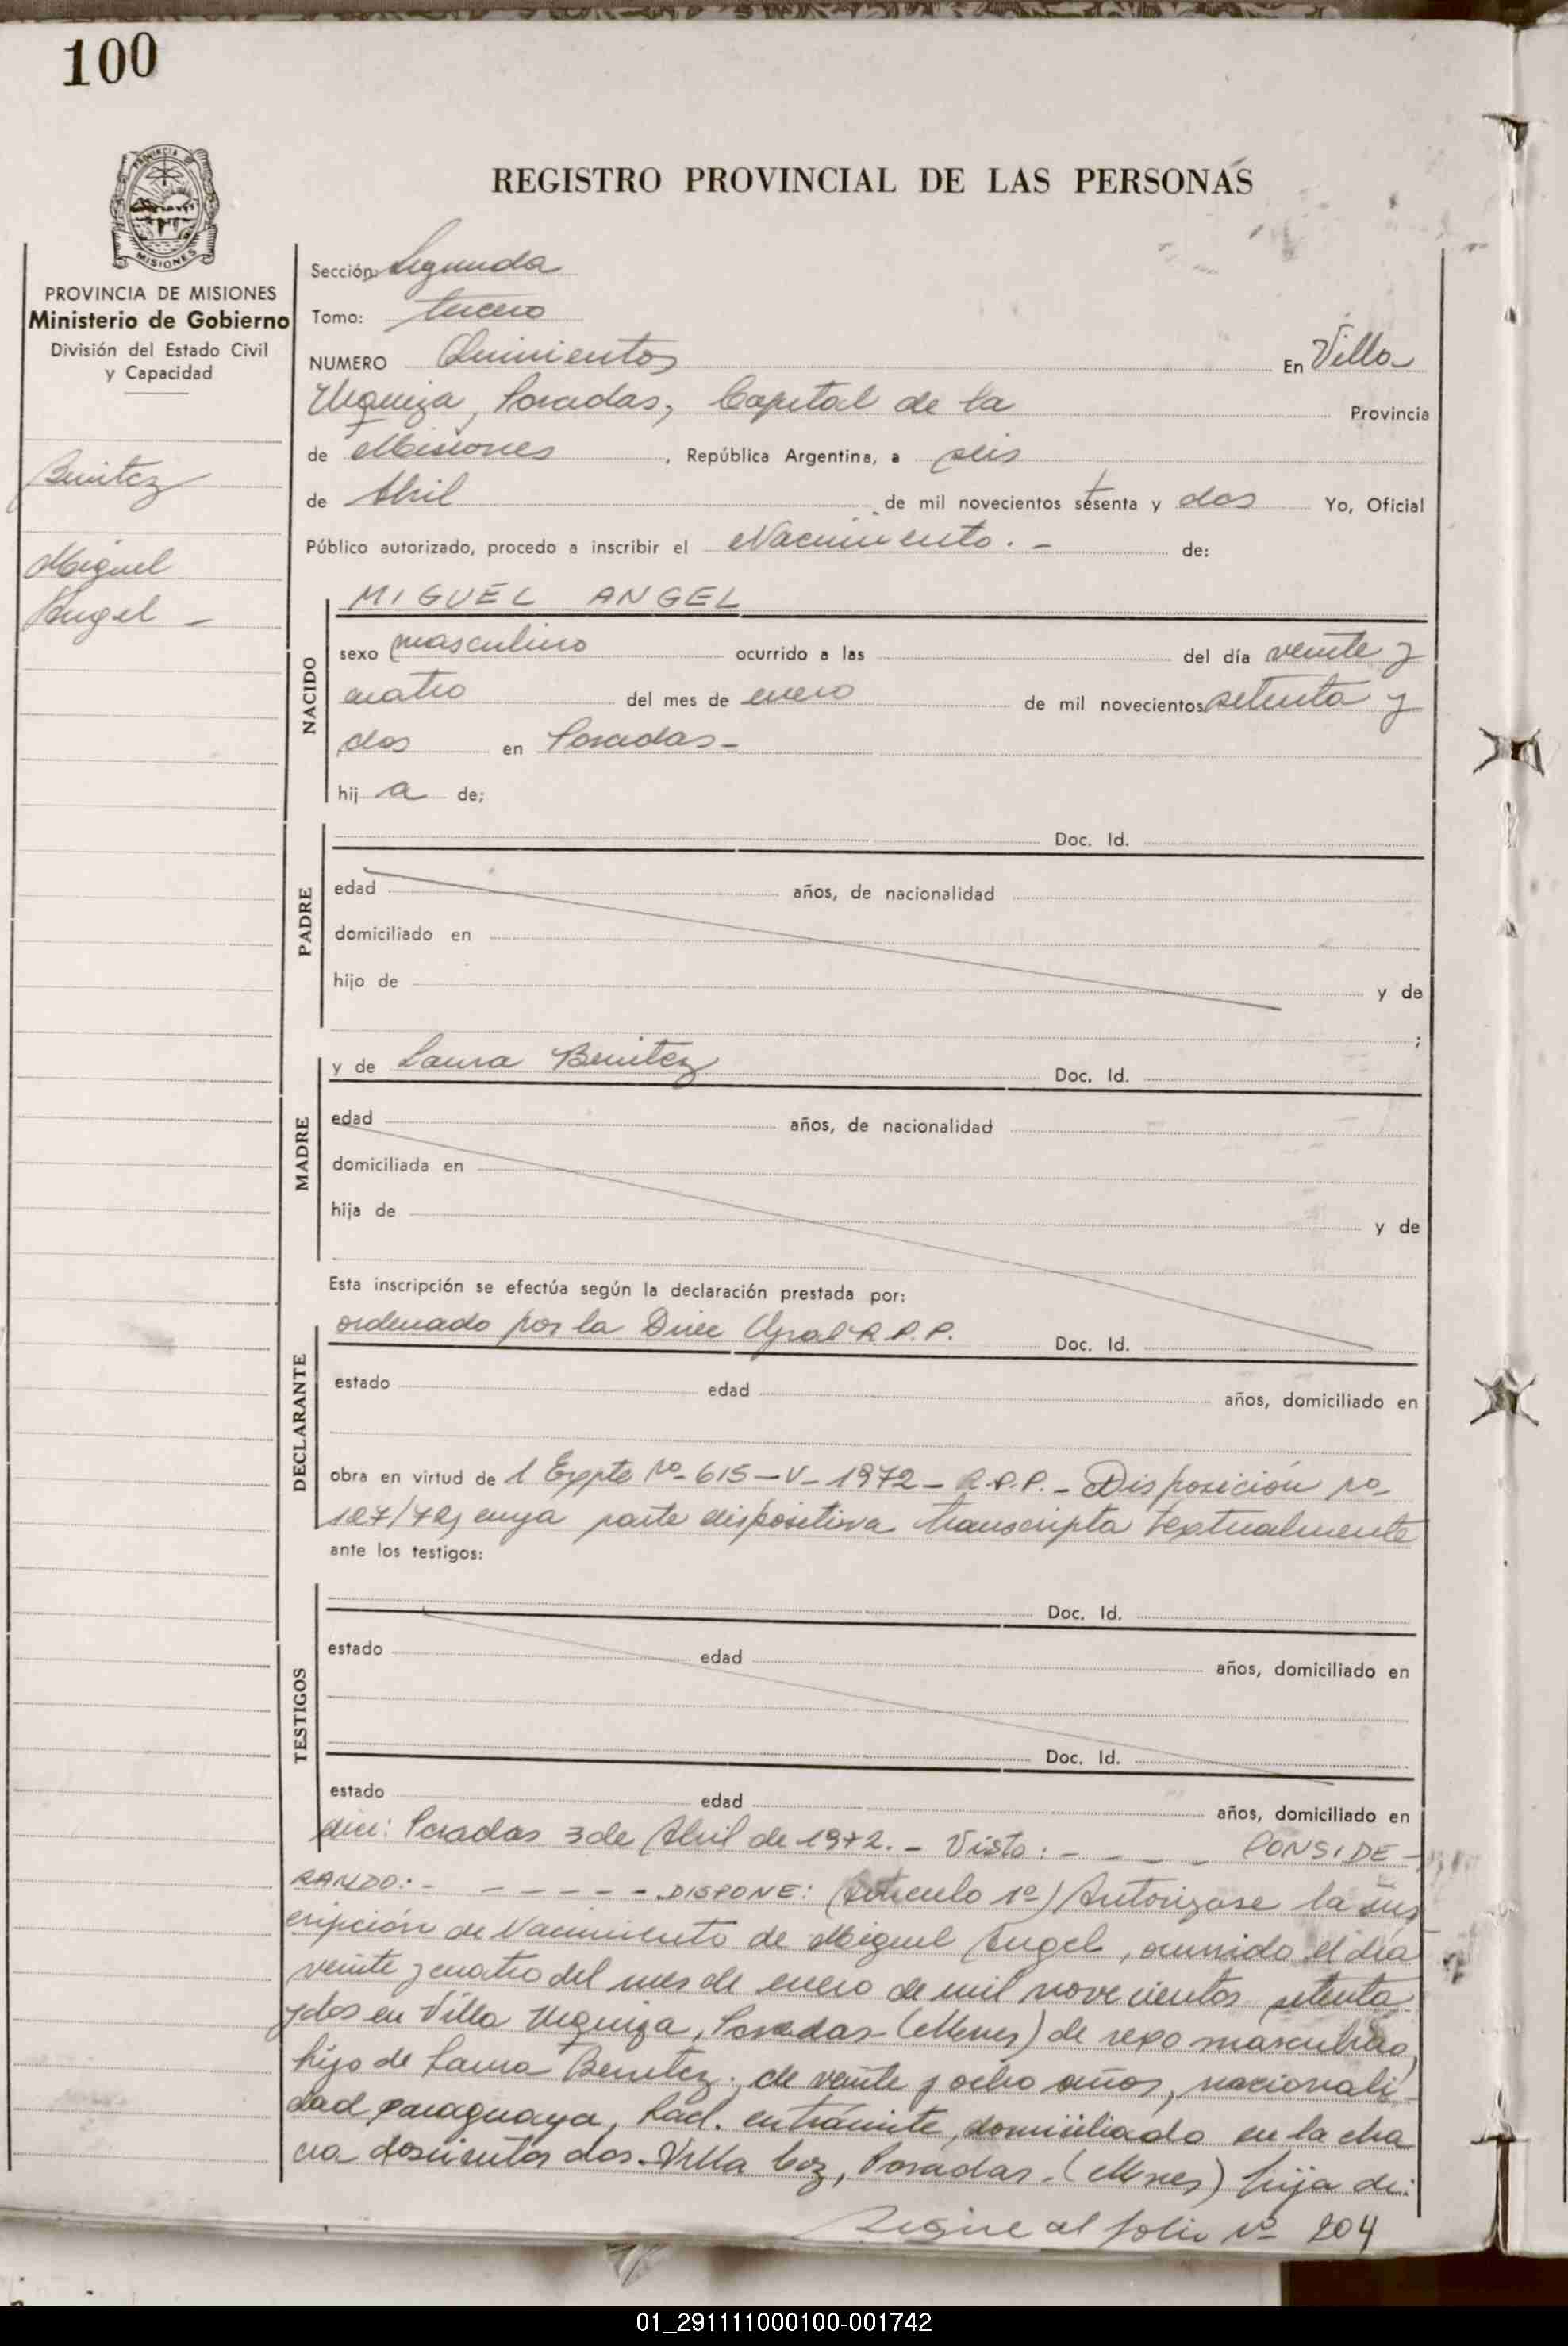 100
REGISTRO PROVINCIAL DE LAS PERSONAS
PROVINCIA DE MISIONES
MISIONES
PROVINCIA DE MISIONES
Ministerio de Gobierno
División del Estado Civil
y Capacidad
Benitez
Miguel
Angel -
Sección: Segunda
Tomo: tercero
NUMERO Quinientos En Villa
Urquiza, Posadas, Capital de la Provincia
de Misiones, República Argentina, a seis
de Abril de mil novecientos setenta y dos Yo, Oficial
Público autorizado, procedo a inscribir el Nacimiento. - de:
NACIDO
MIGUEL ANGEL
sexo masculino ocurrido a las del día veinte y
cuatro del mes de enero de mil novecientos setenta y
dos en Posadas -
hij a de;
PADRE
Doc. Id.
edad años, de nacionalidad
domiciliado en
hijo de y de
;
MADRE
y de Laura Benitez Doc. Id.
edad años, de nacionalidad
domiciliada en
hija de y de
Esta inscripción se efectúa según la declaración prestada por:
DECLARANTE
ordenado por la Direc Gral R.P.P. Doc. Id.
estado edad años, domiciliado en
obra en virtud de l Expte Nº 615-V-1972- R.P.P. - Disposición nº
127/72, cuya parte dispositiva transcripta textualmente
ante los testigos:
TESTIGOS
Doc. Id.
estado edad años, domiciliado en
Doc. Id.
estado edad años, domiciliado en
dice: Posadas 3 de Abril de 1972. - Visto: - - - - CONSIDE-
RANDO: - - - - - - - DISPONE: (Artículo 1º) Autorizase la ins
cripción de Nacimiento de Miguel Angel, ocurrido el día
veinte y cuatro del mes de enero de mil novecientos setenta
y dos en Villa Urquiza, Posadas (Mnes) de sexo masculino,
hijo de Laura Benitez, de veinte y ocho años, nacionali-
dad paraguaya, Rad. en trámite, domiciliada en la cha
cra doscientos dos - Villa Coz, Posadas - (Mnes) hija de:
Sigue al folio Nº 204
01_291111000100-001742